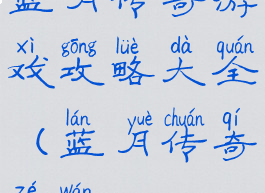 蓝月传奇游
xì gōng lüè dà quán
戏攻略大全
lán yuè chuán qí
(蓝月传奇
zé wán